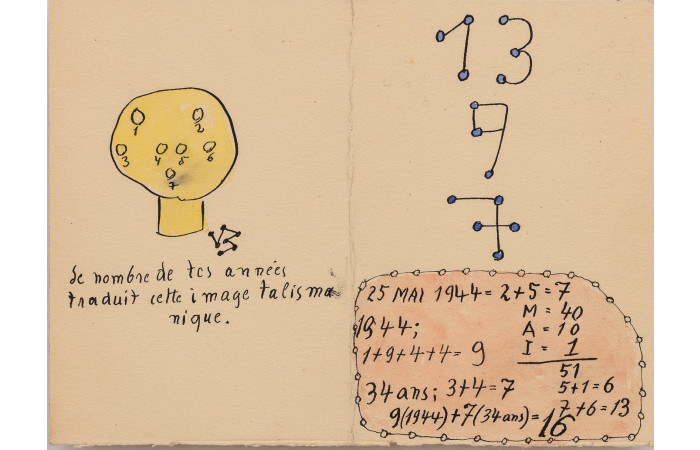 1
2
3 4 5 6
7
VB
Le nombre de tes années
traduit cette image talisma
nique.
13
9
7
25 MAI 1944 = 2+5 = 7
M = 40
1944; A = 10
1+9+4+4 = 9 I = 1
51
34 ans; 3+4 = 7 5+1 = 6
9(1944)+7(34 ans) = 16 7+6 = 13